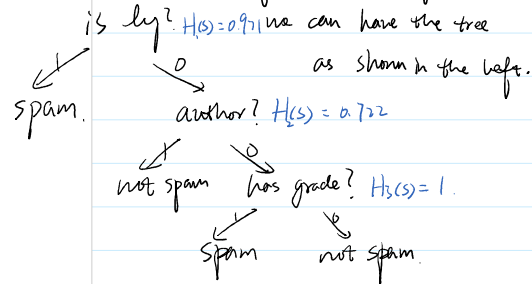 is ly? H₁(s)=0.971 we can have the tree
1 0 as shown in the left.
spam. author? H₂(s) = 0.722
1 0
not spam has grade? H₃(s)= 1.
1 0
spam not spam.